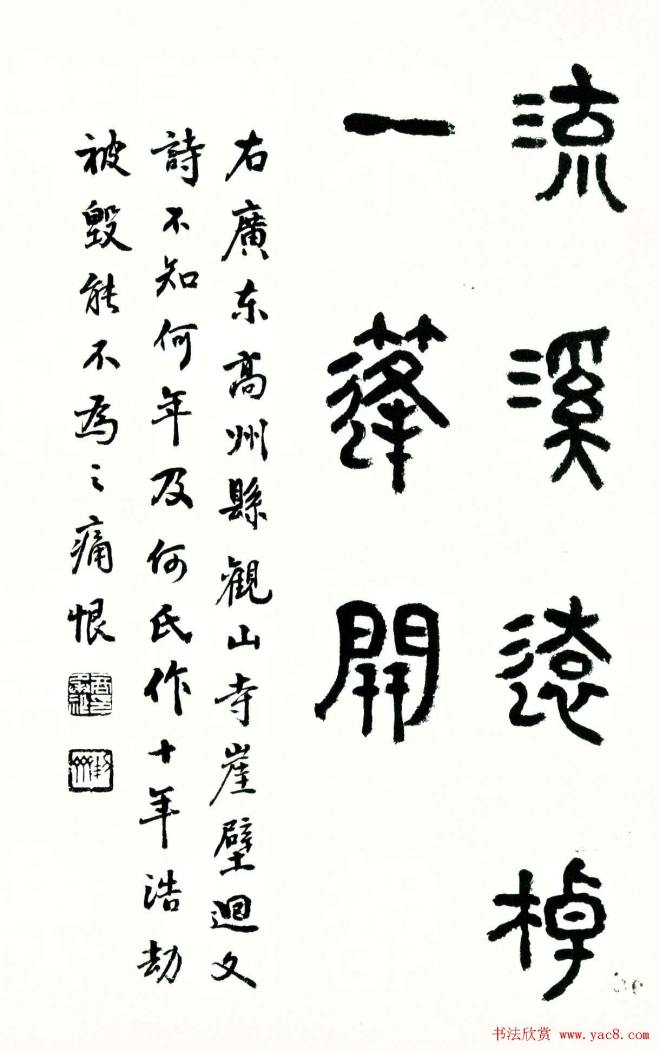 流溪遠棹
一篷開
右廣东高州縣觀山寺崖壁迴文
詩不知何年及何氏作十年浩劫
被毀能不為之痛恨
书法欣赏 www.yac8.com